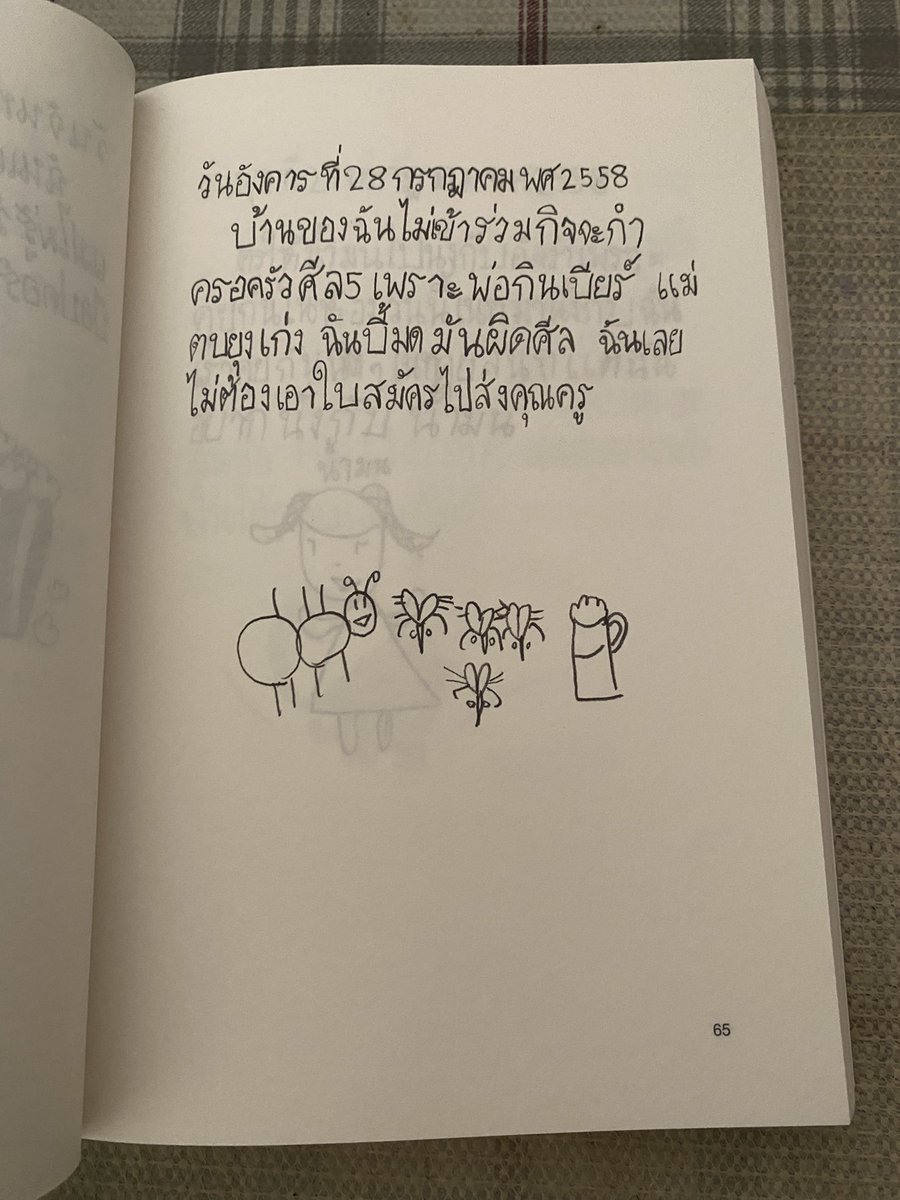 วันอังคาร ที่ 28 กรกฎาคม พศ 2558
บ้านของฉันไม่เข้าร่วมกิจจะกำ
ครอครัวศีล5 เพราะพ่อกินเบียร์ แม่
ตบยุงเก่ง ฉันบี้มด มันผิดศีล ฉันเลย
ไม่ต้องเอาใบสมัครไปส่งคุณครู
65